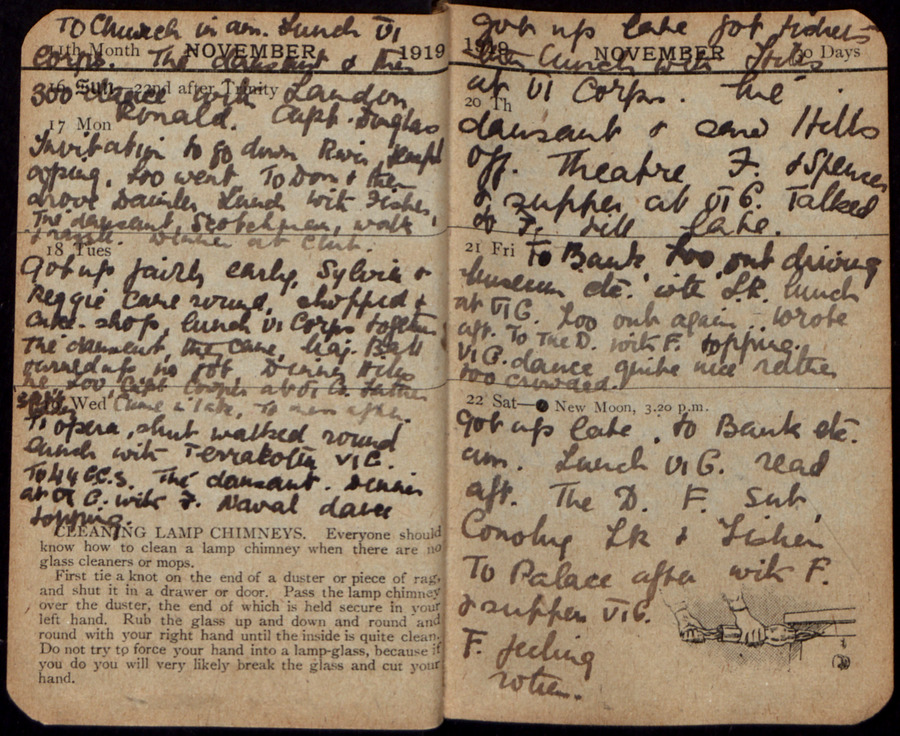 To Church in am. Lunch VI
11th Month NOVEMBER 1919
Corps. Thé dansant & then
16 Sun—22nd after Trinity
300 dance with Landon
Ronald. Capt. Douglas
17 Mon
Invitation to go down Rhin,
topping, too went To Dom & then
drove Daimler Lunch with Fisher,
The dansant, Scotchmen, walk
Dinner at Club.
18 Tues
Got up fairly early, Sylvia &
Reggie came round, shopped &
cake-shop, lunch VI Corps together
Thé dansant, the came, Maj. Ball
turned up Dinner Hills
at VI C.
19 Wed Came in late,
To opera, shut walked round
Lunch with Terracotta VI C.
To 44 C.C.S. Thé dansant. Dinner
at VI C. with F. Naval dance
topping.
CLEANING LAMP CHIMNEYS. Everyone should
know how to clean a lamp chimney when there are no
glass cleaners or mops.
First tie a knot on the end of a duster or piece of rag,
and shut it in a drawer or door. Pass the lamp chimney
over the duster, the end of which is held secure in your
left hand. Rub the glass up and down and round and
round with your right hand until the inside is quite clean.
Do not try to force your hand into a lamp-glass, because if
you do you will very likely break the glass and cut your
hand.
Got up late got
1919 NOVEMBER 30 Days
lunch with Hills
at VI Corps. Thé
20 Th
dansant & saw Hills
off. Theatre F. & Spencer
& supper at VI C. Talked
to F. till late.
21 Fri To Bank Too out driving
Museum etc. with Lk. lunch
at VI C. Too out again. Wrote
aft. To The D. with F. topping.
VI C. dance quite nice rather
too crowded.
22 Sat— New Moon, 3.20 p.m.
Got up late, to Bank etc.
am. Lunch VI C. read
aft. The D. F. Sub,
Conolly Lk & Fisher
To Palace after with F.
& supper VI C.
F. feeling
rotten.